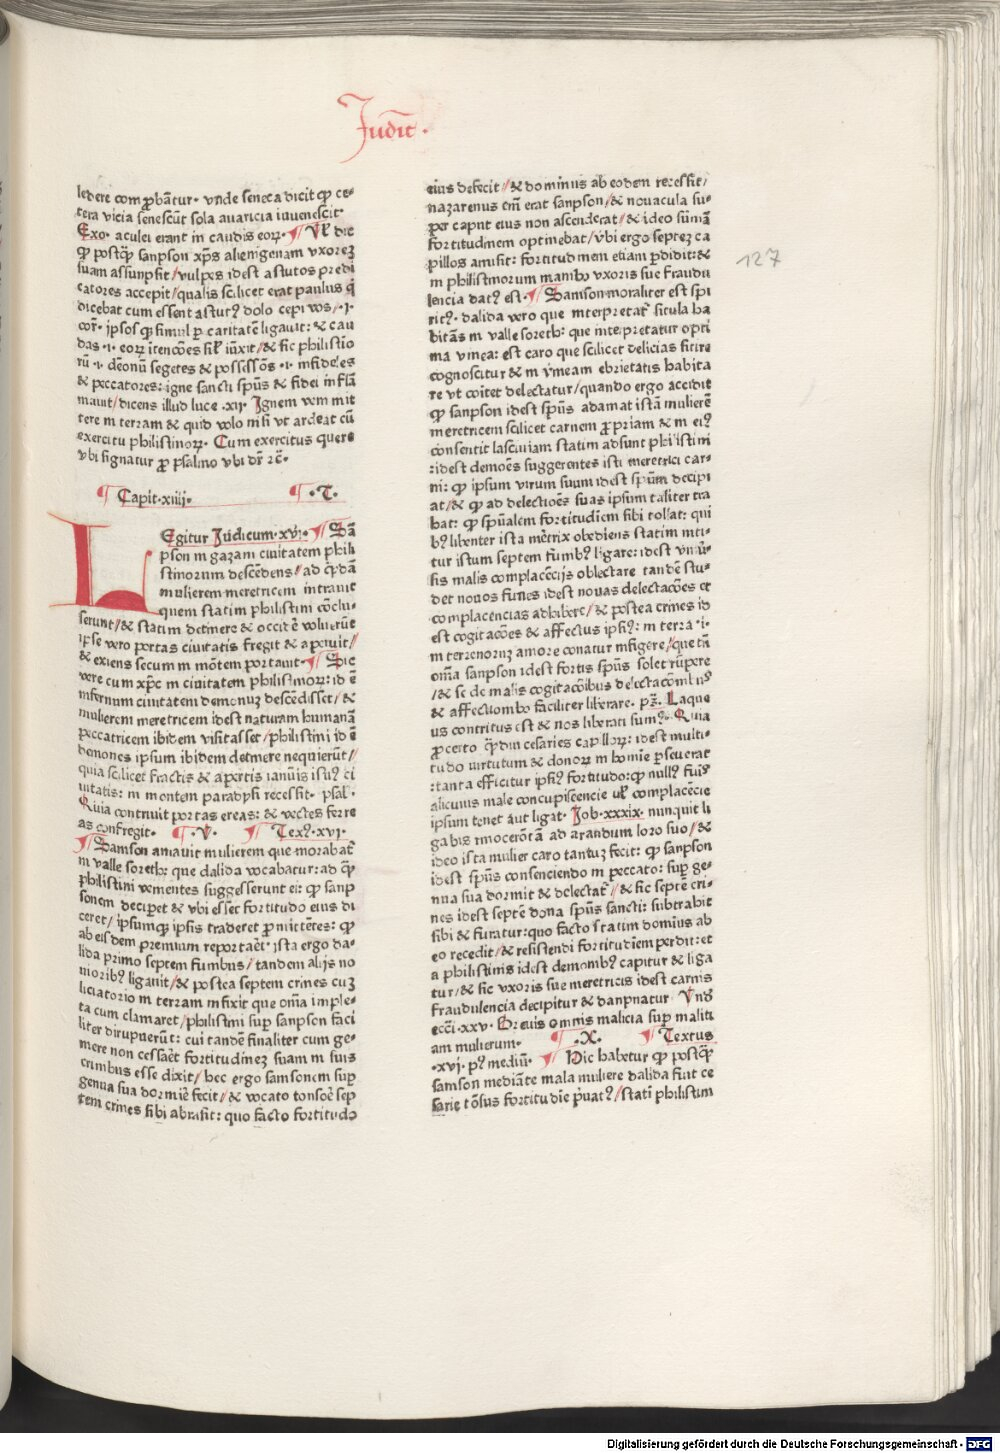 Judicū.
ledere comꝓbãtur· vnde seneca dicit qꝫ ce⸗
tera vicia senescũt sola avaricia iuvenescit·
Exo· aculei erant in caudis eoꝝ· ¶ Vl̛ dic
qꝫ postq̃ꝫ sanpson xp̃s alienigenam vxoreꝫ
suam assunpsit/vulpes idest astutos predi
catores accepit/qualis scilicet erat paulus q̃
dicebat cum essent astutꝰ dolo cepi vos/·i·
cor̃· ipsos qꝫ simul ꝑ caritatẽ ligauit: & cau
das ·i· eoꝝ itencões sil̛ iũxit/& sic philistio
rũ ·i· dẽonũ segetes & possessões ·i· infideles
& peccatores: igne sancti spũs & fidei inflã
mauit/dicens illud luce ·xij· Jgnem veni mit
tere in terram & quid volo nisi vt ardeat cũ
exercitu philistinoꝝ· Cum exercitus quere
vbi signatur ꝓ psalmo vbi dr̃ rc̃·
¶ Capit·xiiij· ¶ ·T·
LEgitur Judicum·xvi· ¶ Sã
pson in gazam ciuitatem phili
stinorum descẽdens/ad q̃ꝫdã
mulierem meretricem intrauit
quem statim philistini cõclu⸗
serunt/& statim detinere & occidẽ voluerũt
ipse vero portas ciuitatis fregit & aperuit/
& exiens secum in mõtem portauit· ¶ Sic
vere cum xp̃c in ciuitatem philistinoꝝ: id ẽ
infernum ciuitatem demonuꝫ descẽdisset/&
mulierem meretricem idest naturam humanã
peccatricem ibidem visitasset/philistini id ẽ
demones ipsum ibidem detinere nequierũt/
quia scilicet fractis & apertis ianuis istiꝰ ci
uitatis: in montem paradysi recessit· psal̛·
Quia contriuit portas ereas: & vectes ferre
as confregit· ¶ ·V· ¶ Texꝰ·xvi·
¶ Samson amauit mulierem que morabat̃
in valle soreth: que dalida vocabatur: ad q̃ꝫ
philistini venientes suggesserunt ei: qꝫ sanp
sonem deciꝑet & vbi esset fortitudo eius di
ceret/ipsumqꝫ ipsis traderet ꝓmittẽtes: qꝫ
ab eisdem premium reportaẽt· ista ergo da⸗
lida primo septem funibus/tandem alijs no
moribꝰ ligauit/& postea septem crines cuꝫ
liciatorio in terram infixit que om̃ia imple⸗
ta cum clamaret/philistini suꝑ sanpson faci
liter dirupuerũt: cui tandẽ finaliter cum ge⸗
mere non cessaẽt fortitudineꝫ suam in suis
crinibus esse dixit/hec ergo samsonem suꝑ
genua sua dormiẽ fecit/& vocato tonsoẽ sep
tem crines sibi abrasit: quo facto fortitudo
eius defecit/& dominus ab eoden recessit/
nazarenus em̃ erat sanpson/& nouacula su⸗
ꝑer caput eius non ascenderat/& ideo sũmã
fortitudinem optinebat/vbi ergo septeꝫ ca
pillos amisit: fortitudinem etiam ꝑdidit: &
in philistinorum manibꝰ vxoris sue fraudu
lencia datꝰ est· ¶ Samson moraliter est spi
ritꝰ· dalida vero que interpretat̃ situla ha
bitãs in valle soreth: que interpretatur opti
ma vinea: est caro que scilicet delicias sitire
cognoscitur & in vineam ebrietatis habita
re vt coitet delectatur/quando ergo accidit
qꝫ sanpson idest spũs adamat istã mulierẽ
meretricem scilicet carnem ꝓpriam & in eiꝰ
consentit lasciuiam statim adsunt philistini
:idest demoẽs suggerentes isti meretrici car⸗
ni: qꝫ ipsum virum suum idest spũm decipi
at/& qꝫ ad delectioẽs suas ipsum taliter tra
hat: qꝫ spũalem fortitudiem sibi tollat: qui
bꝰ libenter ista mẽtrix obediens statim niti⸗
tur istum septem funibꝰ ligare: idest vniuˀ⸗
sis malis complacẽcijs oblectare tandẽ stu⸗
det nouos funes idest nouas delectacões et
complacencias adhibere/& postea crines id
est cogitacões & affectus ipsiꝰ: in terra ·i·
in terrenoruꝫ amore conatur infigere/que tñ
om̃ia sanpson idest fortis spũs solet rũpere
/& se de malis cogitacõibus delectacõinibꝰ
& affectionibꝰ faciliter liberare· pꝫ· Laque
us contritus est & nos liberati sumꝰ· Quia
ꝓcerto q̃ꝫdiu cesaries capilloꝝ: idest multi⸗
tudo virtutum & donoꝝ in homie ꝑseuerat
:tanta efficitur ipsiꝰ fortitudo: qꝫ nullꝰ funiˢ
alicuius male concupiscencie vl̛ complacẽcie
ipsum tenet aut ligat· Job·xxxix· nunquit li
gabis rinocerõtã ad arandum loro suo/&
ideo ista mulier caro tantuꝫ fecit: qꝫ sanpson
idest spũs consenciendo in peccato: suꝑ ge⸗
nua sua dormit & delectat̃/& sic septẽ cri⸗
nes idest septẽ dona spũs sancti: subtrahit
sibi & furatur: quo facto statim domĩus ab
eo recedit/& resistendi fortitudiem perdit: et
a philistinis idest demonibꝰ capitur & liga
tur/& sic vxoris sue meretricis idest carnis
fraudulencia decipitur & danpnatur· Vnᵈ
ecci·xxv· Breuis omnis malicia suꝑ maliti
am mulierum· ¶ ·X· ¶ Textus
·xvi· pꝰ mediũ· ¶ Hic habetur qꝫ postq̃ꝫ
samson mediãte mala muliere dalida fuit ce
sarie tõsus fortitudie p̃uatꝰ/stati philistim
127
Digitalisierung gefördert durch die Deutsche Forschungsgemeinschaft - DFG